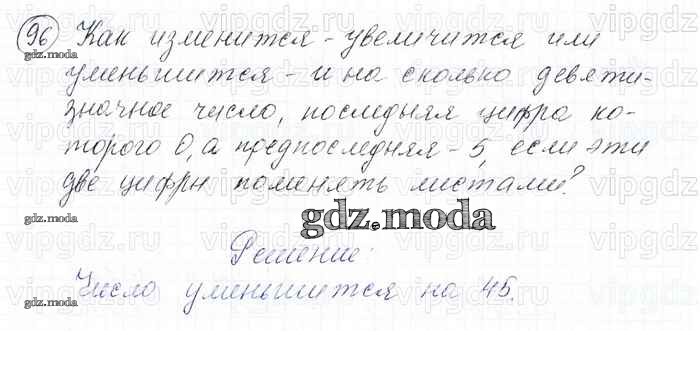 96 Как изменится - увеличится или
уменьшится - и на сколько девяти-
значное число, последняя цифра ко-
торого 0, а предпоследняя - 5, если эти
две цифры поменять местами?
gdz.moda
gdz.moda
gdz.moda
Решение:
Число уменьшится на 45.
gdz.moda
vipgdz.ru